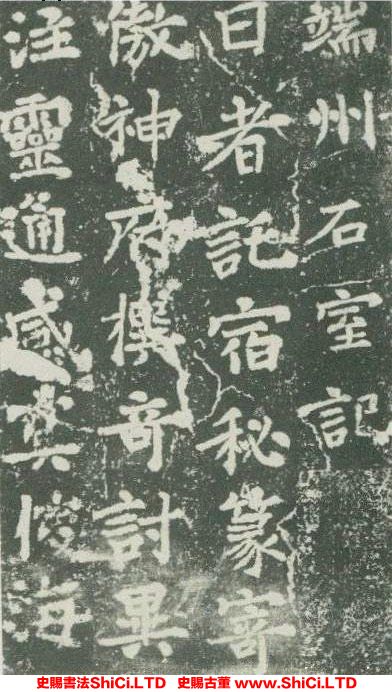 端州石室記
日者託宿秘篆寄
傲神府撰奇討異
靈通感海
史賜書法ShiCi.LTD 史賜古董 www.ShiCi.LTD